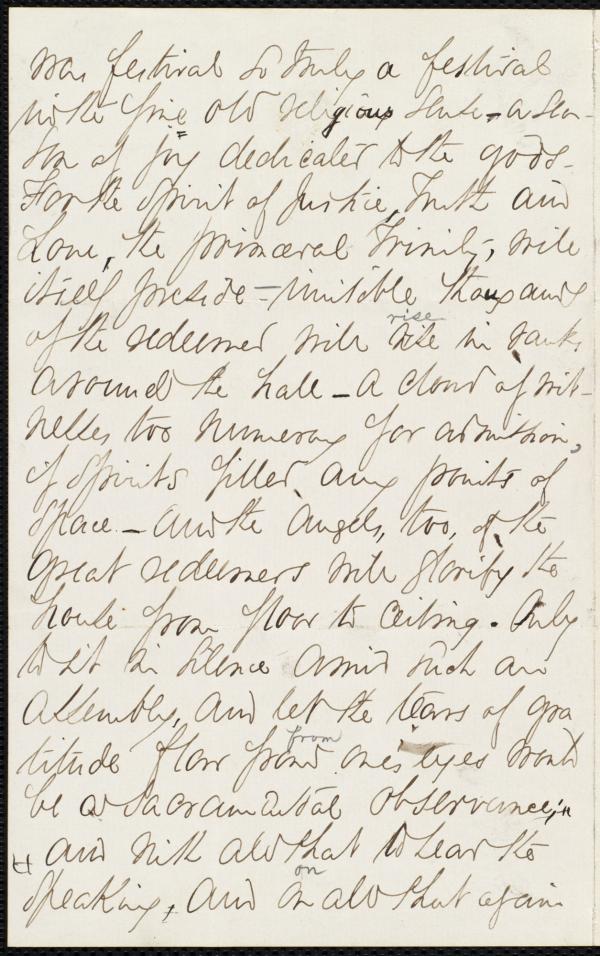 was festival so truly a festival
in the fine old religious sense - a sea-
son of joy dedicated to the gods -
For the Spirit of Justice, Truth and
Love, the primæval Trinity, will
itself preside - invisible thousands
of the redeemed will rise rise in ranks
around the hall - a cloud of wit-
nesses too numerous for admission,
if Spirits filled any points of
Space - and the angels, too, of the
great redeemers will glorify the
house from floor to ceiling. Only
to sit in silence amid such an
assembly, and let the tears of gra
titude flow from from one's eyes would
be a sacramental observance;
and with all that to hear the
speaking, and on on all that again